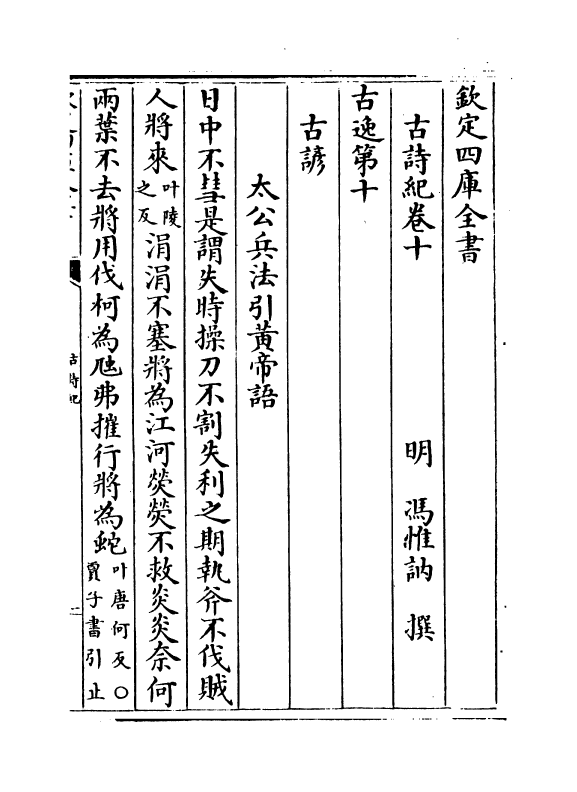 欽定四庫全書
古詩紀卷十
明 馮惟訥 撰
古逸第十
古諺
太公兵法引黃帝語
日中不彗是謂失時操刀不割失利之期執斧不伐賊
人將來叶陵之反涓涓不塞將為江河熒熒不救炎炎奈何
兩葉不去將用伐柯為虺弗摧行將為蛇叶唐何反〇賈子書引止
古詩紀